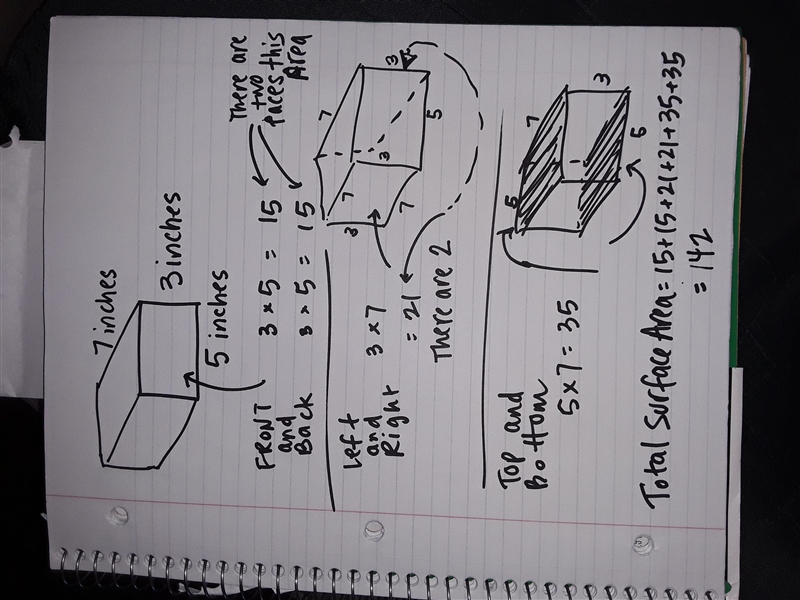 7 inches
3 inches
5 inches
FRONT and Back
3 × 5 = 15
3 × 5 = 15
There are two faces this Area
Left and Right
3 × 7 = 21
There are 2
7
3
3
7
3
7
5
Top and Bottom
5 × 7 = 35
7
3
5
5
Total Surface Area = 15+15+21+21+35+35
= 142